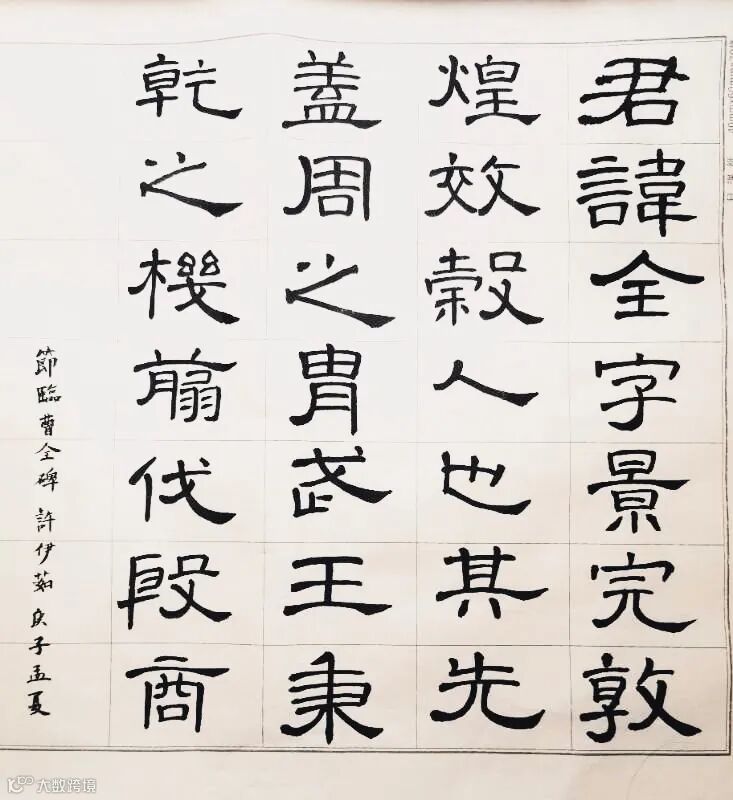 君諱全字景完敦
煌效穀人也其先
蓋周之胄武王秉
乾之機翦伐殷商
節臨曹全碑 許伊茹 庚子孟夏
大数跨境